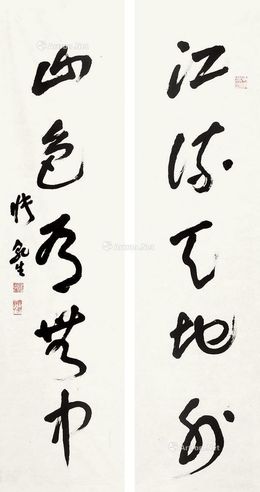 江流天地外
山色有无中
乾生
Artron.Net